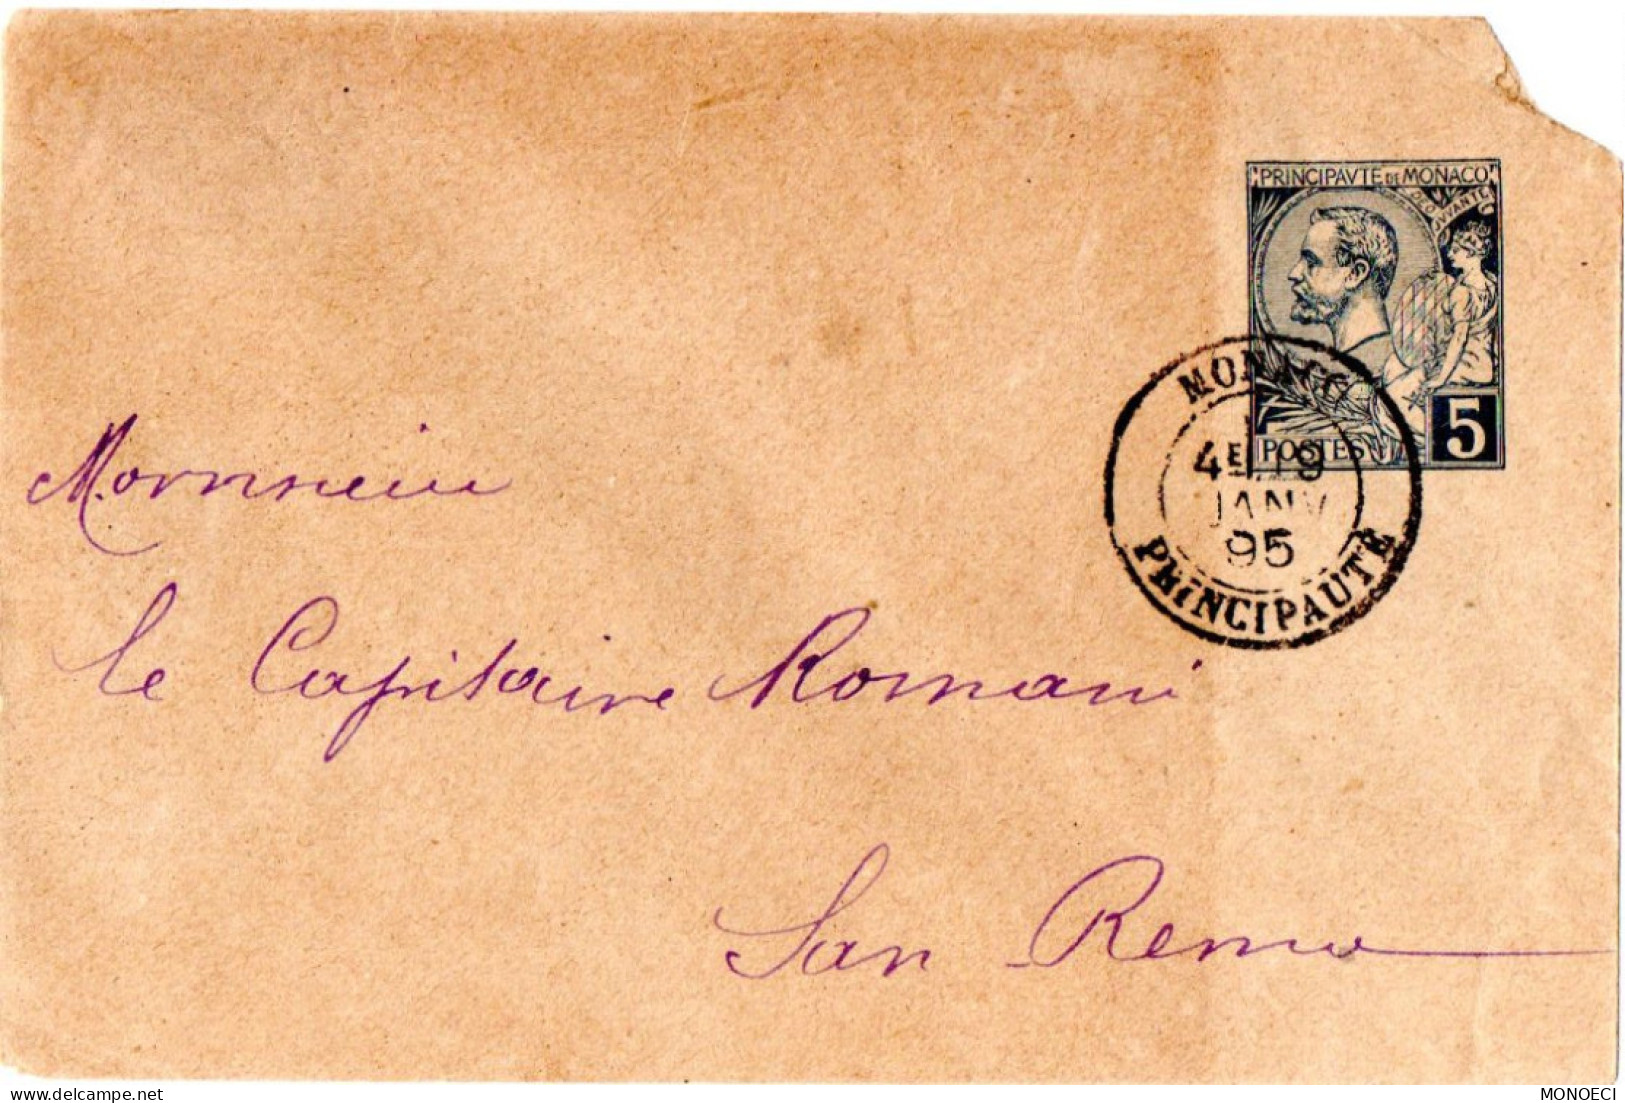 PRINCIPAVTE DE MONACO
POSTES 5
MONACO
4E 19
JANV
95
PRINCIPAUTÉ
Monsieur
le Capitaine Romani
San Remo
delcampe.net
MONOECI